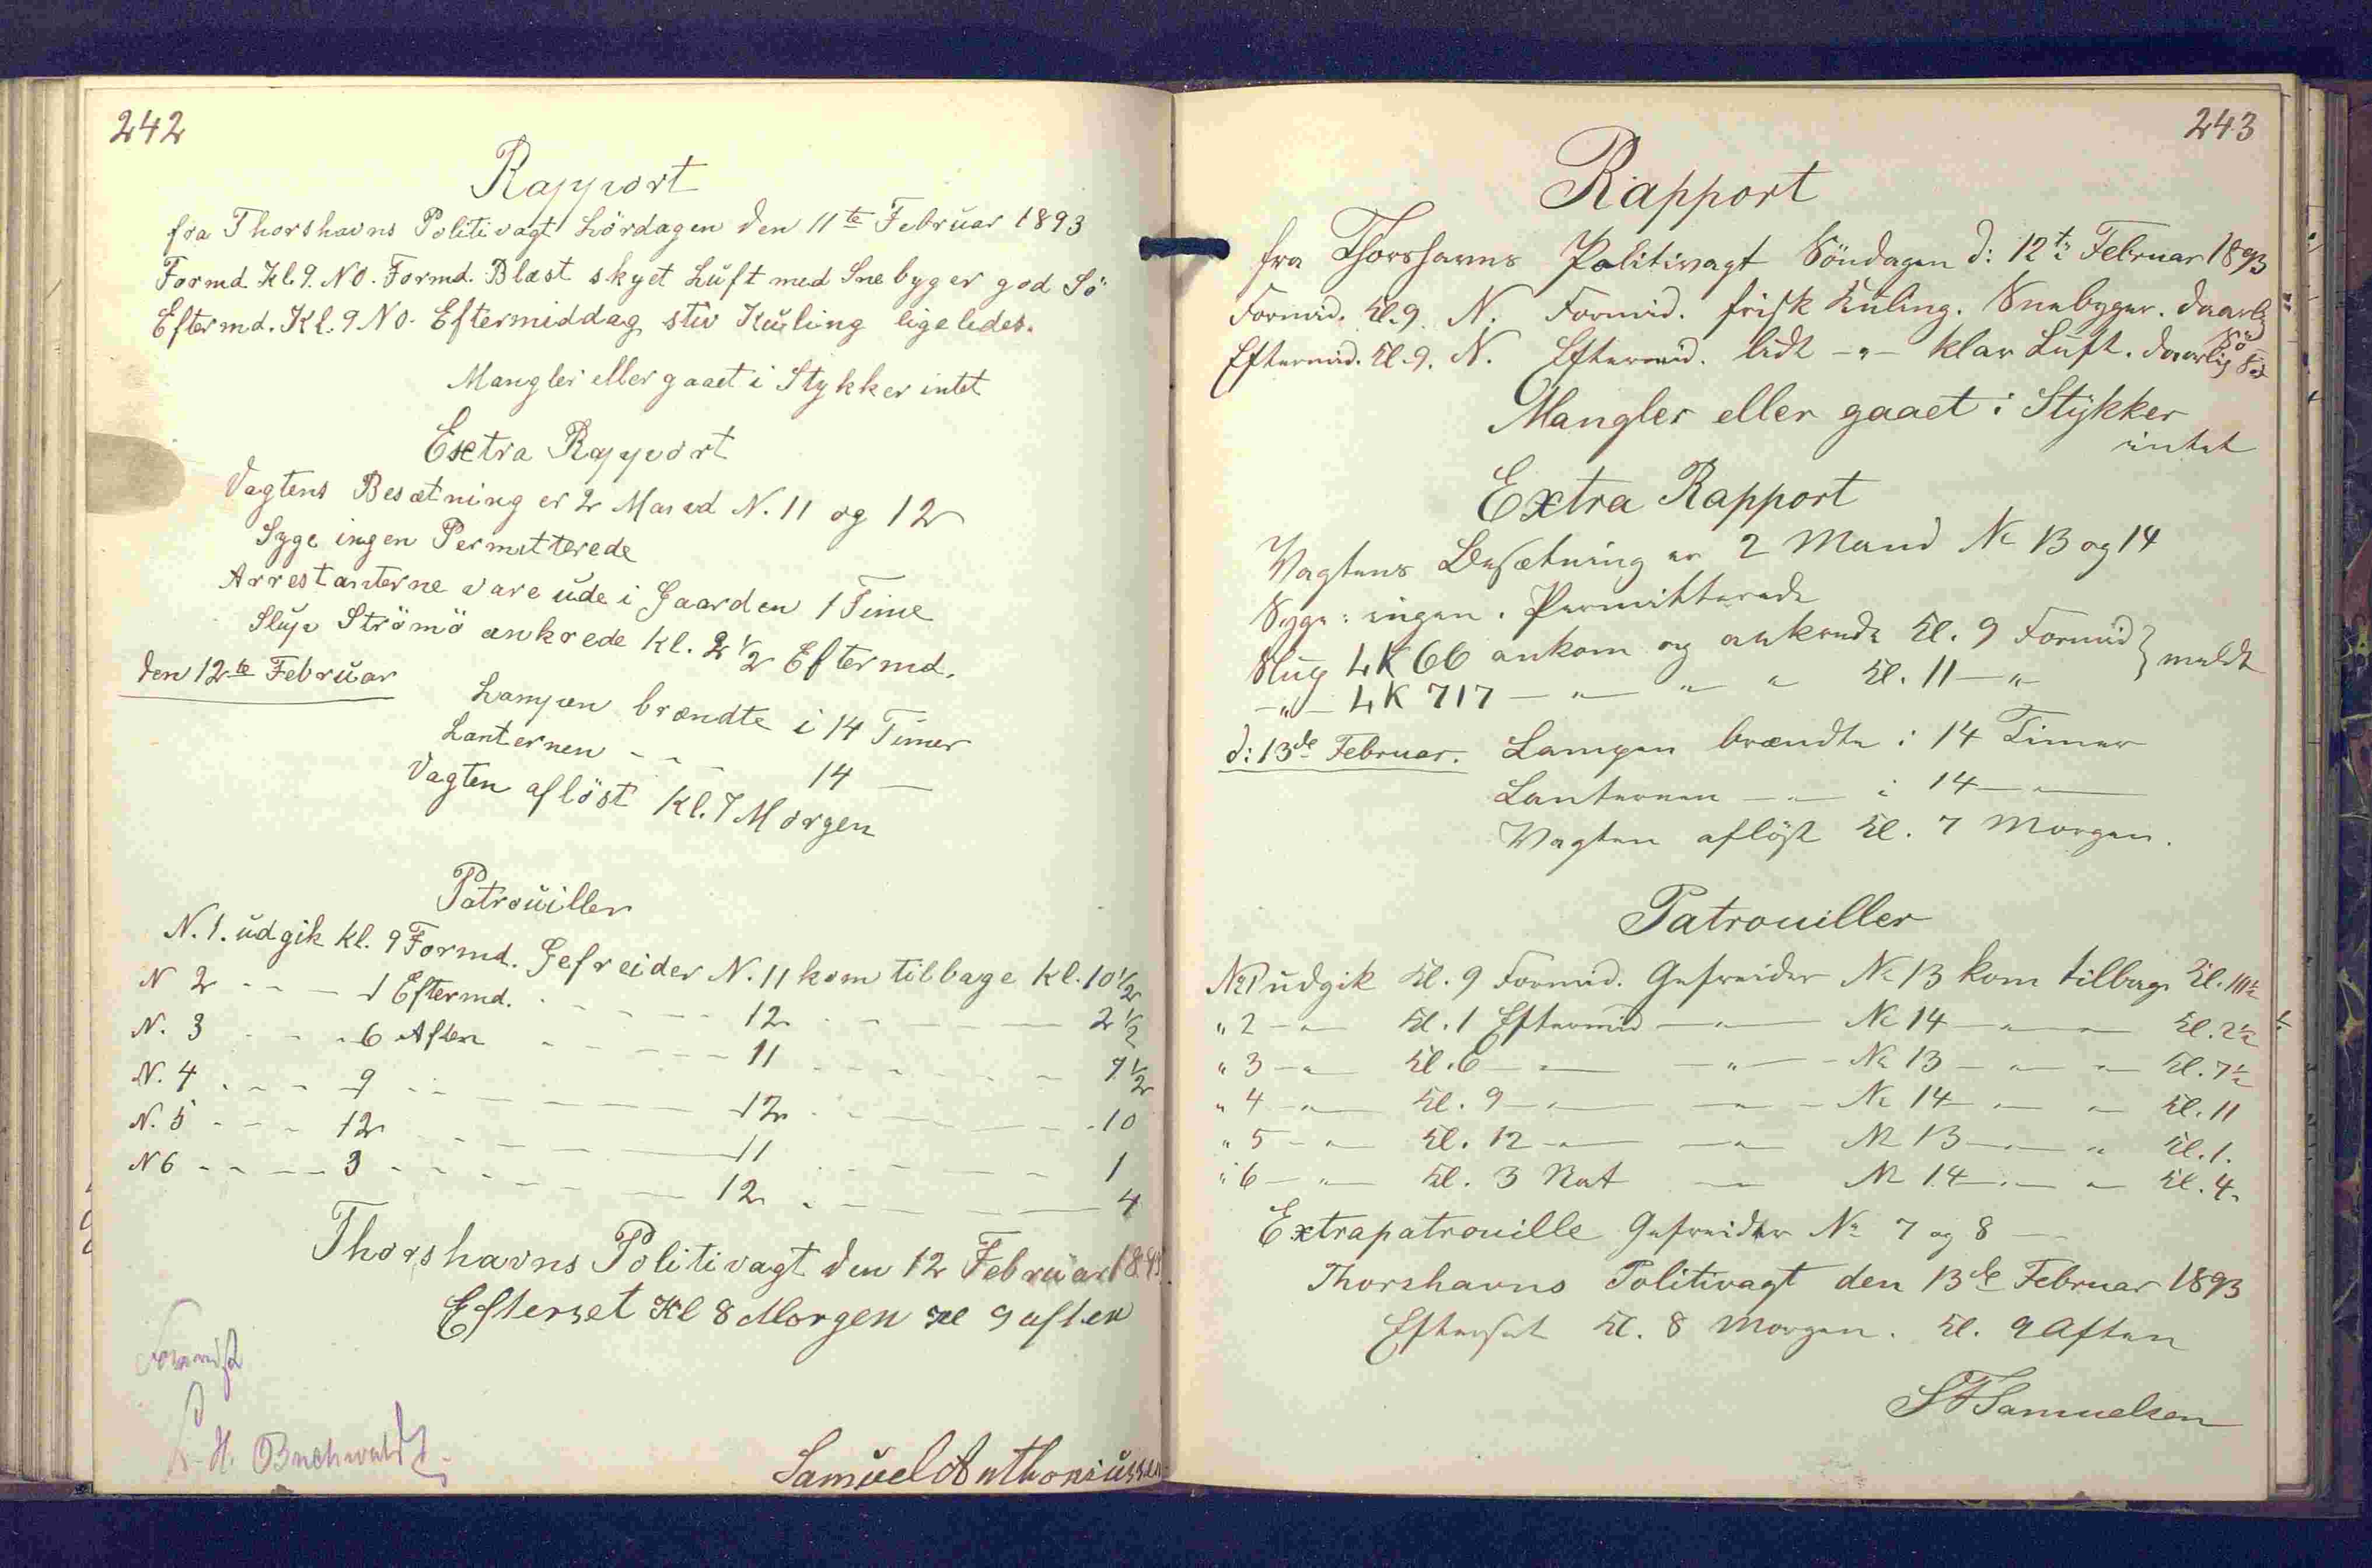 242
Rapport
fra Thorshavns Politivagt Lördagen den 11te Februar 1893
Formd. Kl. 9. NO. Formd. Blæst skyet Luft med Snebyger god Sö
Eftermd. Kl. 9 NO. Eftermiddag stiv Kuling ligeledes.
Mangler eller gaaet i Stykker intet
Extra Rapport
Vagtens Besætning er 2 Mand N. 11 og 12
Syge ingen Permitterede
Arrestanterne vare ude i Gaarden 1 Time
Slup Strömö ankrede Kl. 2 1/2 Eftermd.
den 12te Februar
Lampen brændte i 14 Timer
Lanternen - - - 14 —
Vagten aflöst Kl. 7 Morgen
Patrouiller
N. 1. udgik Kl. 9 Formd. Gefreider N. 11 kom tilbage Kl. 10 1/2
N 2 - - - 1 Eftermd. - - - - 12 - - - - 2 1/2
N. 3 - - - 6 Aften - - - - 11 - - - - 7 1/2
N. 4 - - - 9 - - - - 12 - - - - 10
N. 5 - - - 12 - - - - 11 - - - - 1
N 6 - - - 3 - - - - 12 - - - - 4
Thorshavns Politivagt den 12 Februar 1893
Efterset Kl 8 Morgen Kl 9 aften
Buchwaldt
Samuel Anthoniussen
243
Rapport
fra Thorshavns Politivagt Söndagen d: 12te Februar 1893
Formid. Kl. 9. N. Formid. frisk Kuling. Snebyger. daarlig Sö
Eftermid. Kl. 9. N. Eftermid. lidt -"- klar Luft. daarlig Sö
Mangler eller gaaet i Stykker
intet
Extra Rapport
Vagtens Besætning er 2 Mand No 13 og 14
Syge: ingen. Permitterede
Slup LK 66 ankom og ankrede Kl. 9 Formid } meldt
-"- LK 717 — " — " " Kl. 11 — "
d: 13de Februar. Lampen brændte i 14 Timer
Lanternen — " — i 14 — " —
Vagten aflöst Kl. 7 Morgen.
Patrouiller
No 1 udgik Kl. 9 Formid. Gefreider No 13 kom tilbage Kl. 10 1/2
" 2 - " Kl. 1 Eftermid — " — No 14 — " — " Kl. 2 1/2
" 3 - " Kl. 6 — " — - " - No 13 — " — " Kl. 7 1/2
" 4 - " Kl. 9 — " — " - No 14 — " — " Kl. 11
" 5 - " Kl. 12 — " — " No 13 — " — " Kl. 1.
" 6 - " Kl. 3 Nat — " No 14 — " — " Kl. 4.
Extrapatrouille Gefreider No 7 og 8 —
Thorshavns Politivagt den 13de Februar 1893
Efterset Kl. 8 Morgen. Kl. 9 Aften
Samuelsen